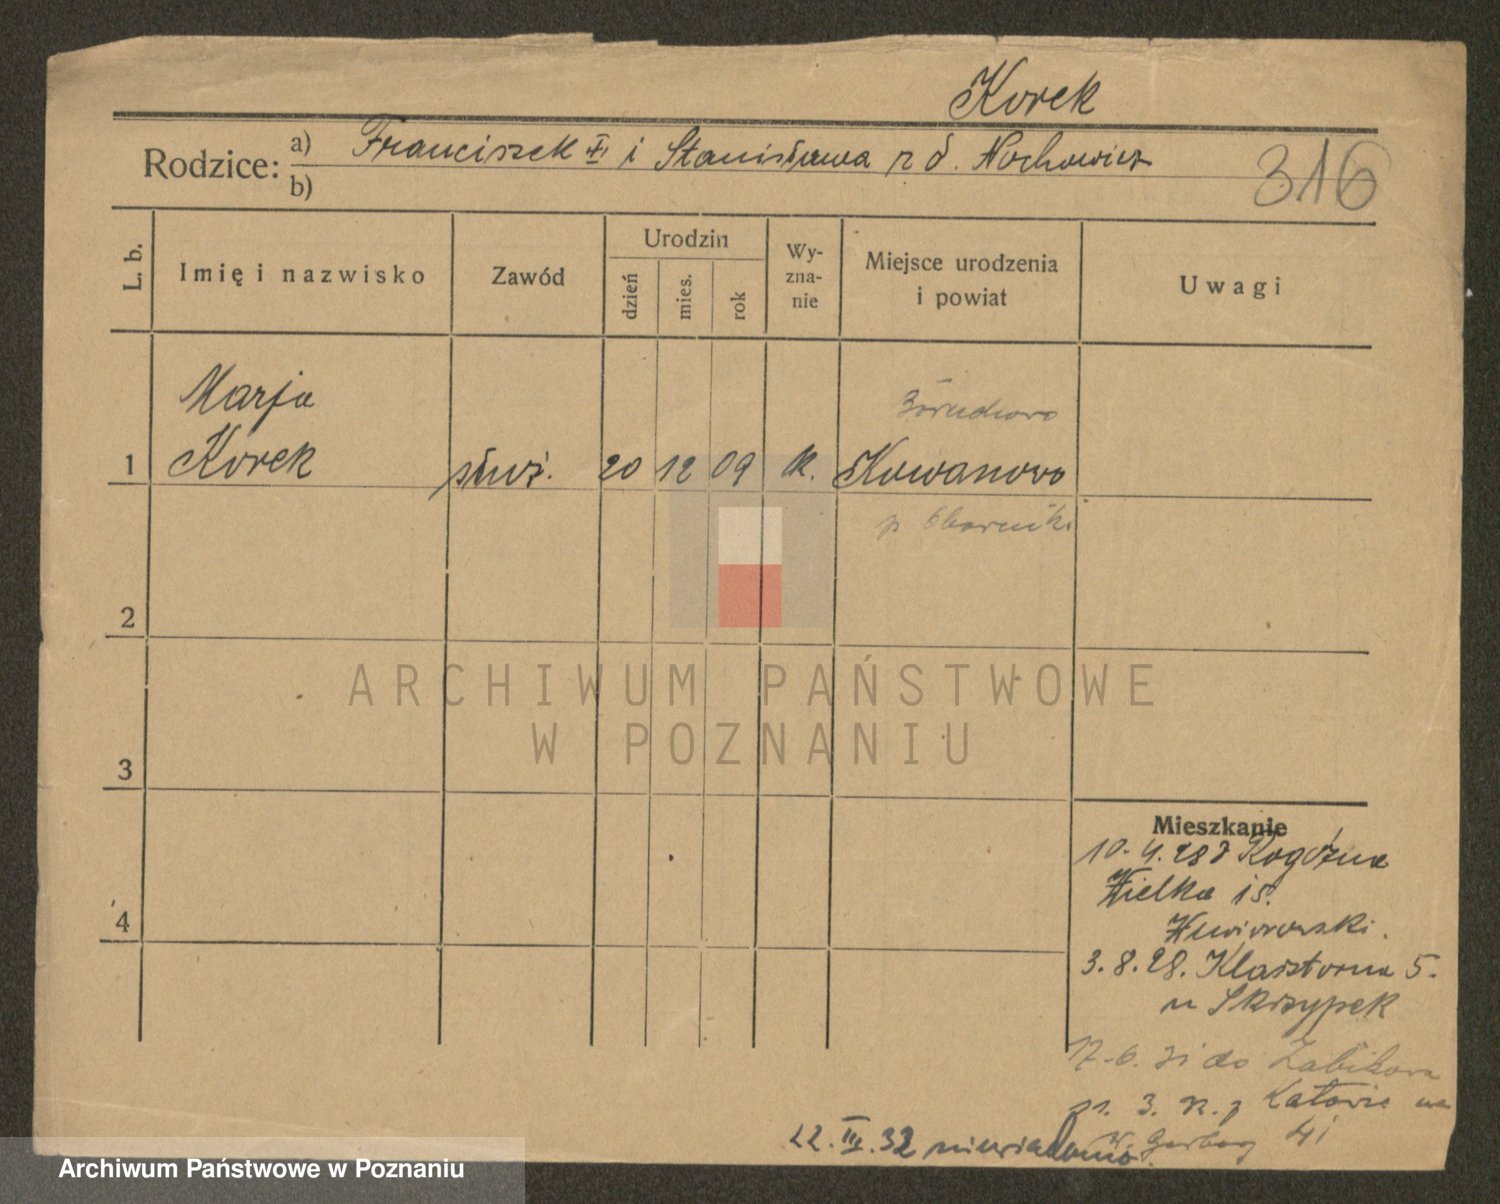 Korek
Rodzice: a) Franciszek i Stanisława z d. Nochowicz
b)
316
L. b.
Imię i nazwisko
Zawód
Urodzin
dzień
mies.
rok
Wy-
zna-
nie
Miejsce urodzenia
i powiat
Uwagi
Marja
1 Korek służ. 20 12 09 k. Kowanowo
p Oborniki
2
3
4
ARCHIWUM PAŃSTWOWE
W POZNANIU
Mieszkanie
10. 4. 28 z Rogoźna
Wielka 15.
3. 8. 28. Klasztorna 5.
u Skrzypek
17. 6. 31 do Żabikowa
31. 3. 32. z Katowic na
W. Garbary 41
22. III. 32 niewiadomo.
Archiwum Państwowe w Poznaniu